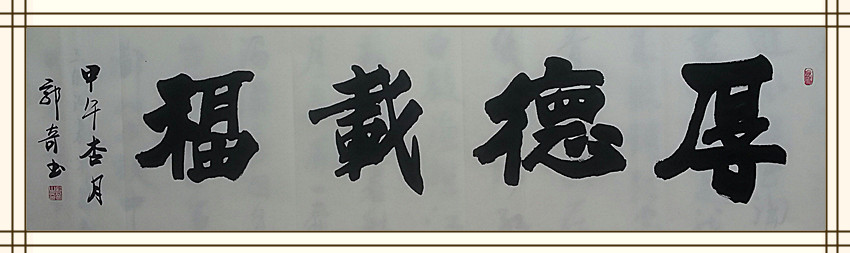 厚德載福
甲午杏月
郭奇书